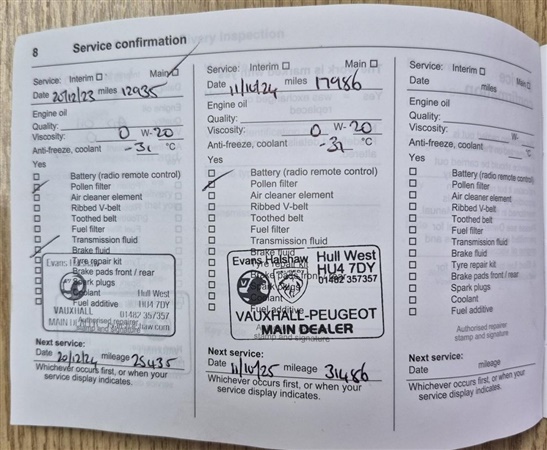 8 Service confirmation
Service: Interim Main
Date 20/12/23 miles 12935
Engine oil
Quality:
Viscosity: 0 W-20
Anti-freeze, coolant -31 °C
Yes
Battery (radio remote control)
Pollen filter
Air cleaner element
Ribbed V-belt
Toothed belt
Fuel filter
Transmission fluid
Brake fluid
Tyre repair kit
Brake pads front / rear
Spark plugs
Coolant
Fuel additive
Evans Halshaw
Hull West
HU4 7DY
01482 357357
VAUXHALL
MAIN
Authorised repairer
stamp and signature
Next service:
Date 20/12/24 mileage 25435
Whichever occurs first, or when your
service display indicates.
Service: Interim Main
Date 11/10/24 miles 17986
Engine oil
Quality:
Viscosity: 0 W-20
Anti-freeze, coolant -31 °C
Yes
Battery (radio remote control)
Pollen filter
Air cleaner element
Ribbed V-belt
Toothed belt
Fuel filter
Transmission fluid
Brake fluid
Tyre repair kit
Brake pads front / rear
Spark plugs
Coolant
Fuel additive
Evans Halshaw
Hull West
HU4 7DY
01482 357357
VAUXHALL-PEUGEOT
MAIN DEALER
stamp and signature
Next service:
Date 11/10/25 mileage 31486
Whichever occurs first, or when your
service display indicates.
Service: Interim Main
Date miles
Engine oil
Quality:
Viscosity: W-
Anti-freeze, coolant °C
Yes
Battery (radio remote control)
Pollen filter
Air cleaner element
Ribbed V-belt
Toothed belt
Fuel filter
Transmission fluid
Brake fluid
Tyre repair kit
Brake pads front / rear
Spark plugs
Coolant
Fuel additive
Authorised repairer
stamp and signature
Next service:
Date mileage
Whichever occurs first, or when your
service display indicates.